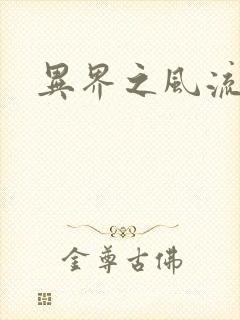 異界之風流
金尊古佛